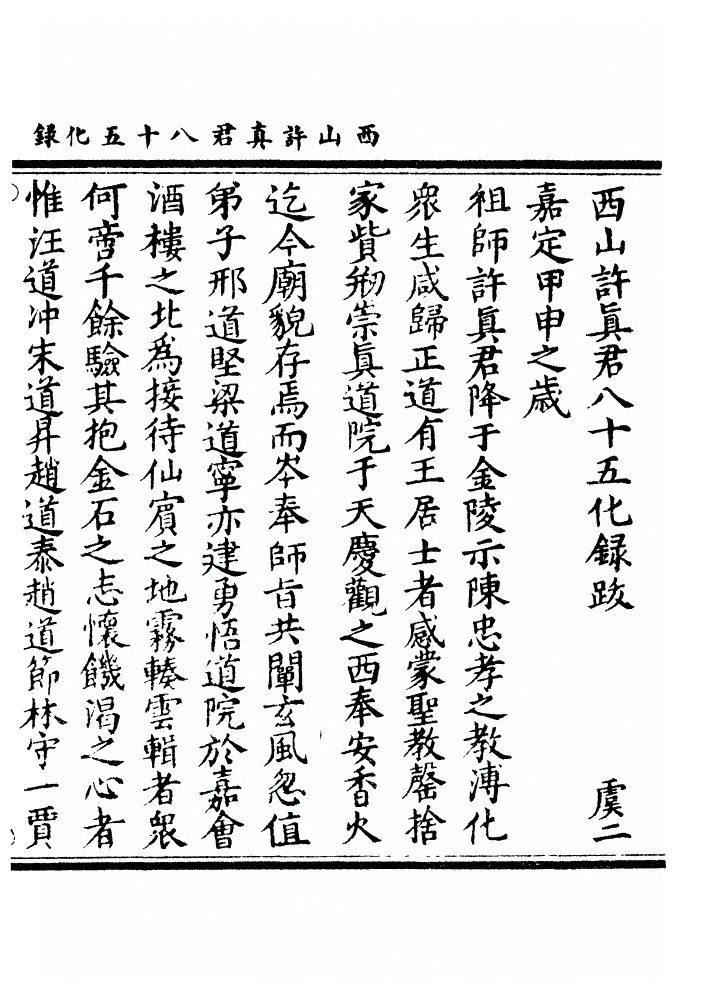 西山許真君八十五化錄
西山許眞君八十五化録跋 虞二
嘉定甲申之歲
祖師許眞君降于金陵示陳忠孝之教溥化
衆生咸歸正道有王居士者感蒙聖教罄捨
家貲剏崇眞道院于天慶觀之西奉安香火
迄今廟貌存焉而岑奉師旨共闡玄風忽值
弟子邢道堅梁道寧亦建勇悟道院於嘉會
酒樓之北為接待仙賓之地霧輳雲輯者衆
何啻千餘驗其抱金石之志懷饑渴之心者
惟汪道冲宋道昇趙道泰趙道節林守一賈